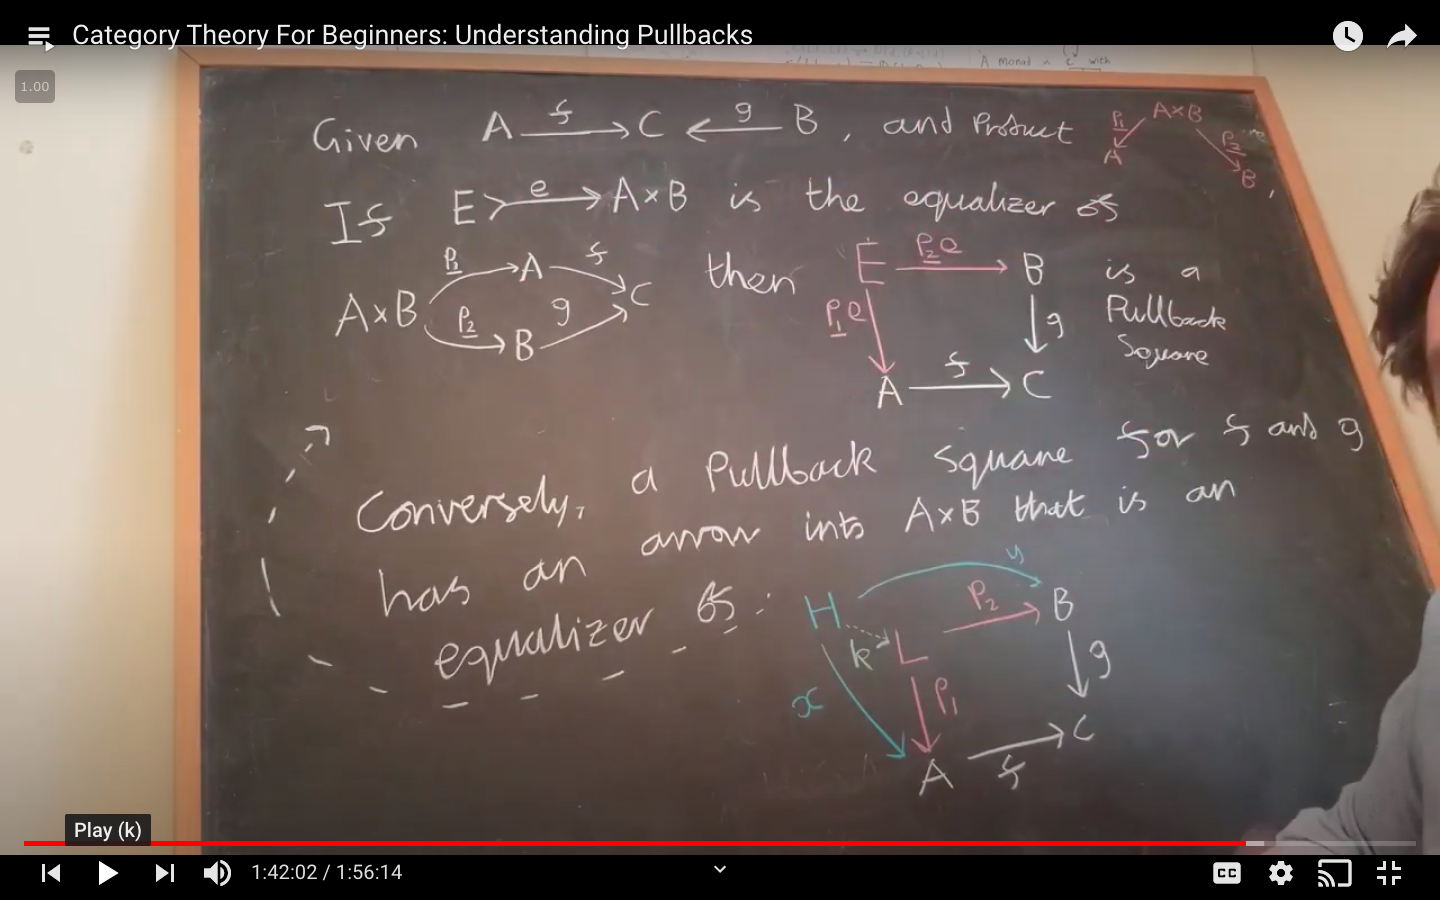 Category Theory For Beginners: Understanding Pullbacks
1.00
A monad in C with
Given A f C g B , and Product P1 A×B P2 A B ,
If E e A×B is the equalizer of
A×B P1 A f C P2 B g then E P2e B is a
P1e g Pullback
Square
A f C
Conversely, a Pullback Square for f and g
has an arrow into A×B that is an
equalizer of :
H y B
k L P2 g
x P1 C
A f
Play (k)
1:42:02 / 1:56:14
CC